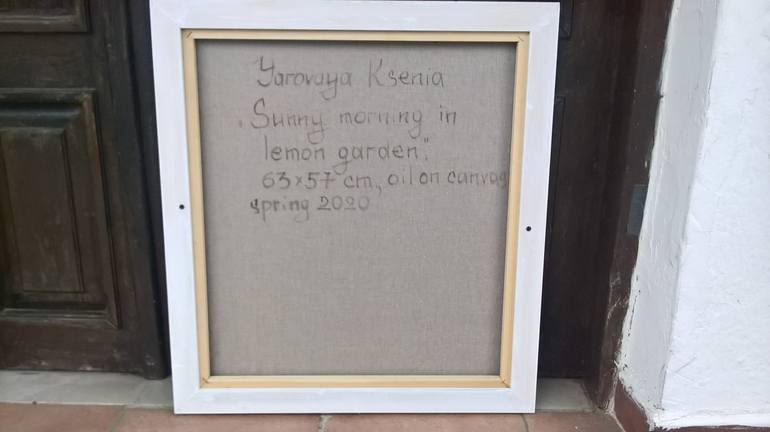 Yarovaya Ksenia
„Sunny morning in
lemon garden"
63×57 cm, oil on canvas
spring 2020